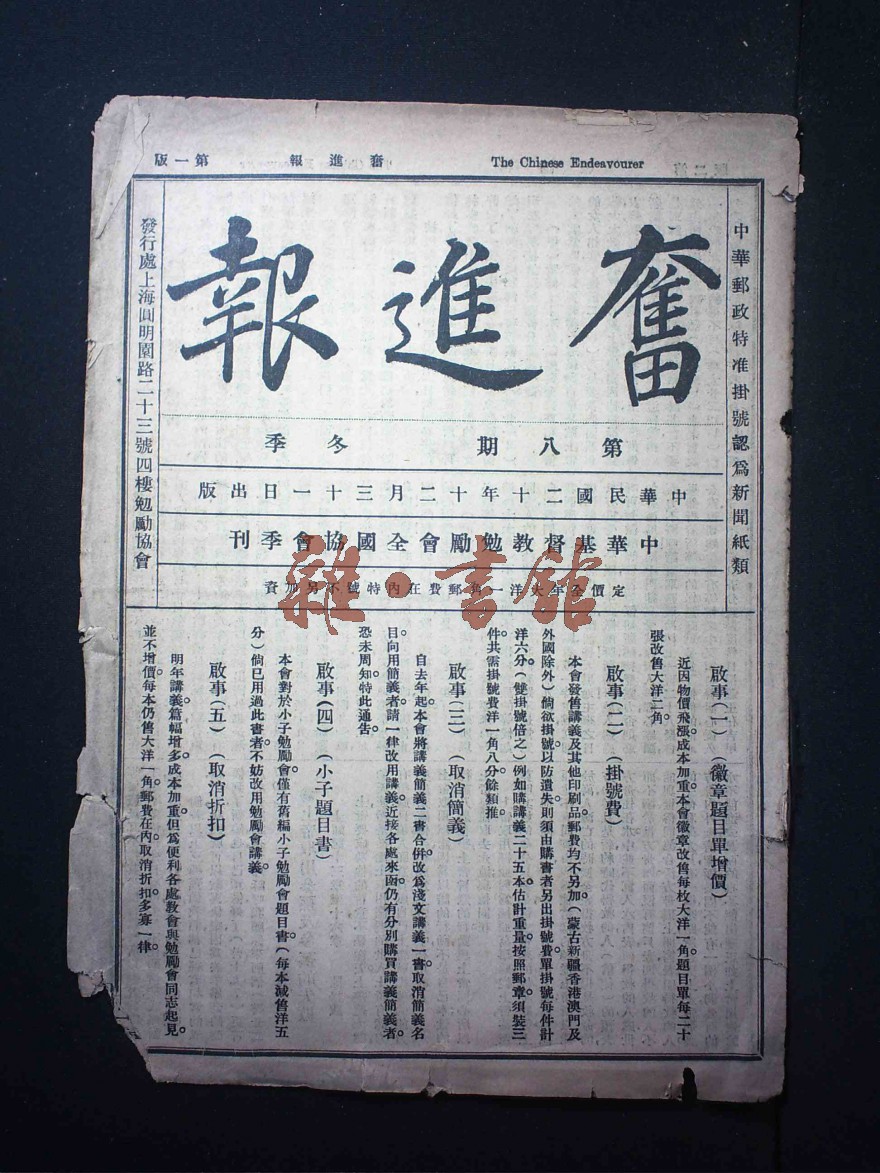 The Chinese Endeavourer
奮進報
第一版
中華郵政特准掛號認爲新聞紙類
奮進報
第八期 冬季
中華民國二十年十二月三十一日出版
中華基督教勉勵會全國協會季刊
定價全年大洋一角郵費在內特號不另加資
雜·書館
發行處上海圓明園路二十三號四樓勉勵協會
啟事(一) (徽章題目單增價)
近因物價飛漲。成本加重。本會徽章改售每枚大洋一角。題目單每二十
張改售大洋二角。
啟事(二) (掛號費)
本會發售講義及其他印刷品郵費均不另加(蒙古新疆香港澳門及
外國除外)倘欲掛號。以防遺失。則須由購書者另出掛號費單掛號每件計
洋六分。(雙掛號倍之)例如購講義二十五本。估計重量。按照郵章。須裝三
件。共需掛號費洋一角八分。餘類推。
啟事(三) (取消簡義)
自去年起。本會將講義簡義二書合併。改爲淺文講義一書。取消簡義名
目。向用簡義者。請一律改用講義。近接各處來函。仍有分別購買講義簡義者。
恐未周知。特此通告。
啟事(四) (小子題目書)
本會對於小子勉勵會。僅有舊編小子勉勵會題目書。(每本減售洋五
分)倘已用過此書者。不妨改用勉勵會講義。
啟事(五) (取消折扣)
明年講義篇幅增多。成本加重。但爲便利各處教會與勉勵會同志起見。
並不增價。每本仍售大洋一角。郵費在內。取消折扣。多寡一律。